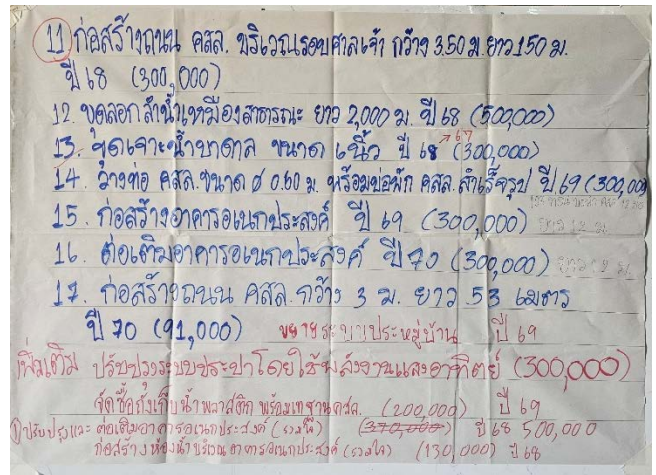 11 ก่อสร้างถนน คสล. บริเวณรอบศาลเจ้า กว้าง 3.50 ม. ยาว 150 ม.
ปี 68 (300,000)
12. ขุดลอกลำน้ำเหมืองสาธารณะ ยาว 2,000 ม. ปี 68 (500,000)
67
13. ขุดเจาะน้ำบาดาล ขนาด 6 นิ้ว ปี 68 (300,000)
14. วางท่อ คสล. ขนาด ø 0.60 ม. พร้อมบ่อพัก คสล. สำเร็จรูป ปี 69 (300,000)
15. ก่อสร้างอาคารอเนกประสงค์ ปี 69 (300,000)
16. ต่อเติมอาคารอเนกประสงค์ ปี 70 (300,000)
17. ก่อสร้างถนน คสล. กว้าง 3 ม. ยาว 53 เมตร
ปี 70 (91,000) ขยาย ประปาหมู่บ้าน ปี 69
เพิ่มเติม ปรับปรุงระบบประปาโดยใช้พลังงานแสงอาทิตย์ (300,000)
จัดซื้อถังเก็บน้ำพลาสติก พร้อมเทฐานคสล. (200,000) ปี 69
ปรับปรุงและ ต่อเติมอาคารอเนกประสงค์ (รวมใจ) (370,000) ปี 68 500,000
ก่อสร้างห้องน้ำบริเวณอาคารอเนกประสงค์ (รวมใจ) (130,000) ปี 68